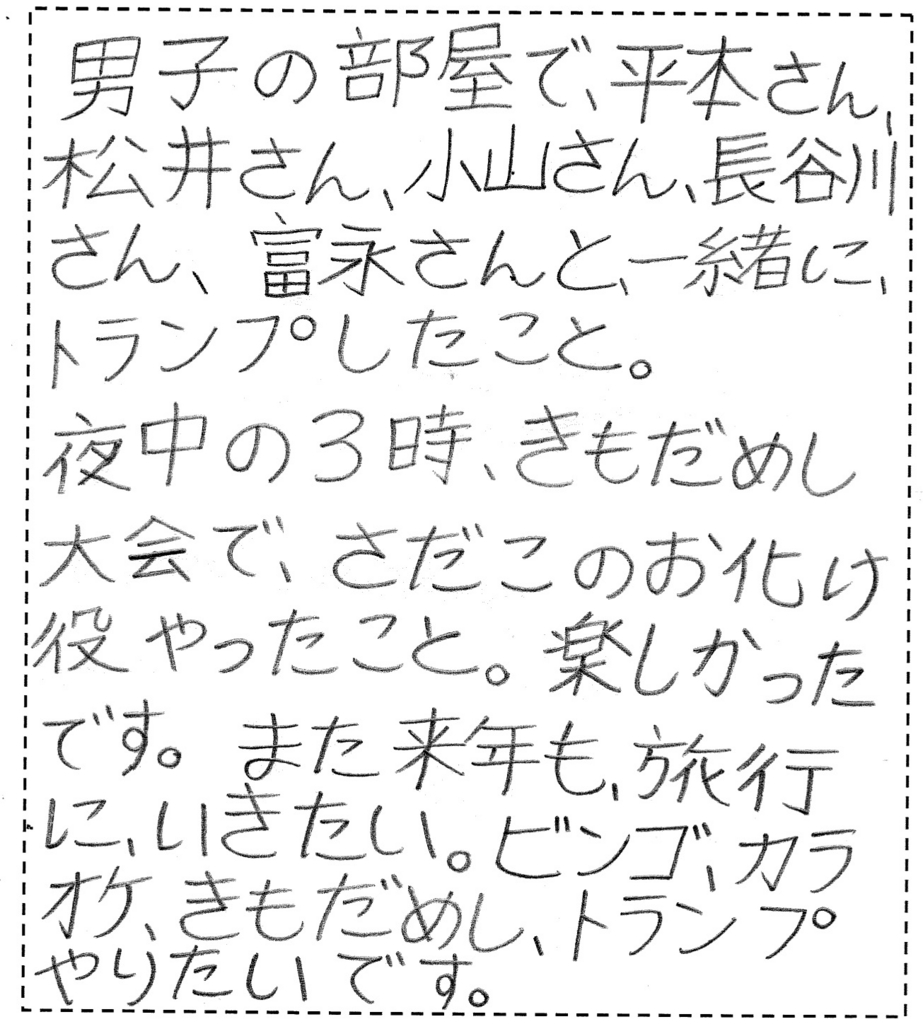 男子の部屋で、平本さん、
松井さん、小山さん、長谷川
さん、富永さんと、一緒に、
トランプしたこと。
夜中の3時、きもだめし
大会で、さだこのお化け
役やったこと。楽しかった
です。また来年も、旅行
に、いきたい。ビンゴ、カラ
オケ、きもだめし、トランプ
やりたいです。